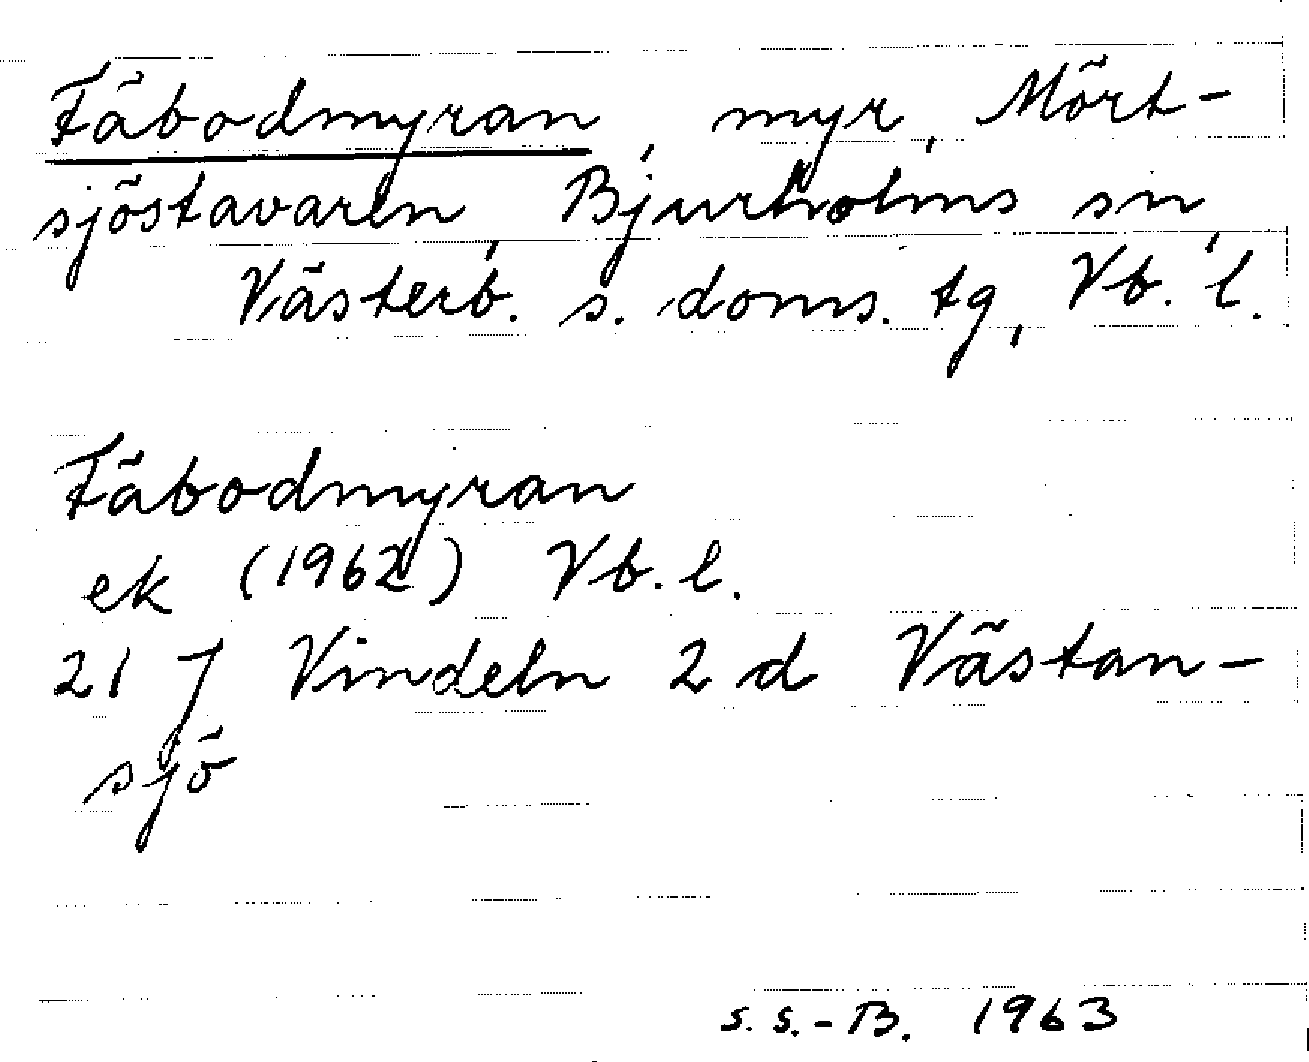 Fäbodmyran, myr, Mört-
sjöstavaren, Bjurholms sn,
Västerb. s. doms. tg, Vb. l.
Fäbodmyran
ek (1962) Vb. l.
21 J Vindeln 2 d Västan-
sjö
s. s.-B. 1963